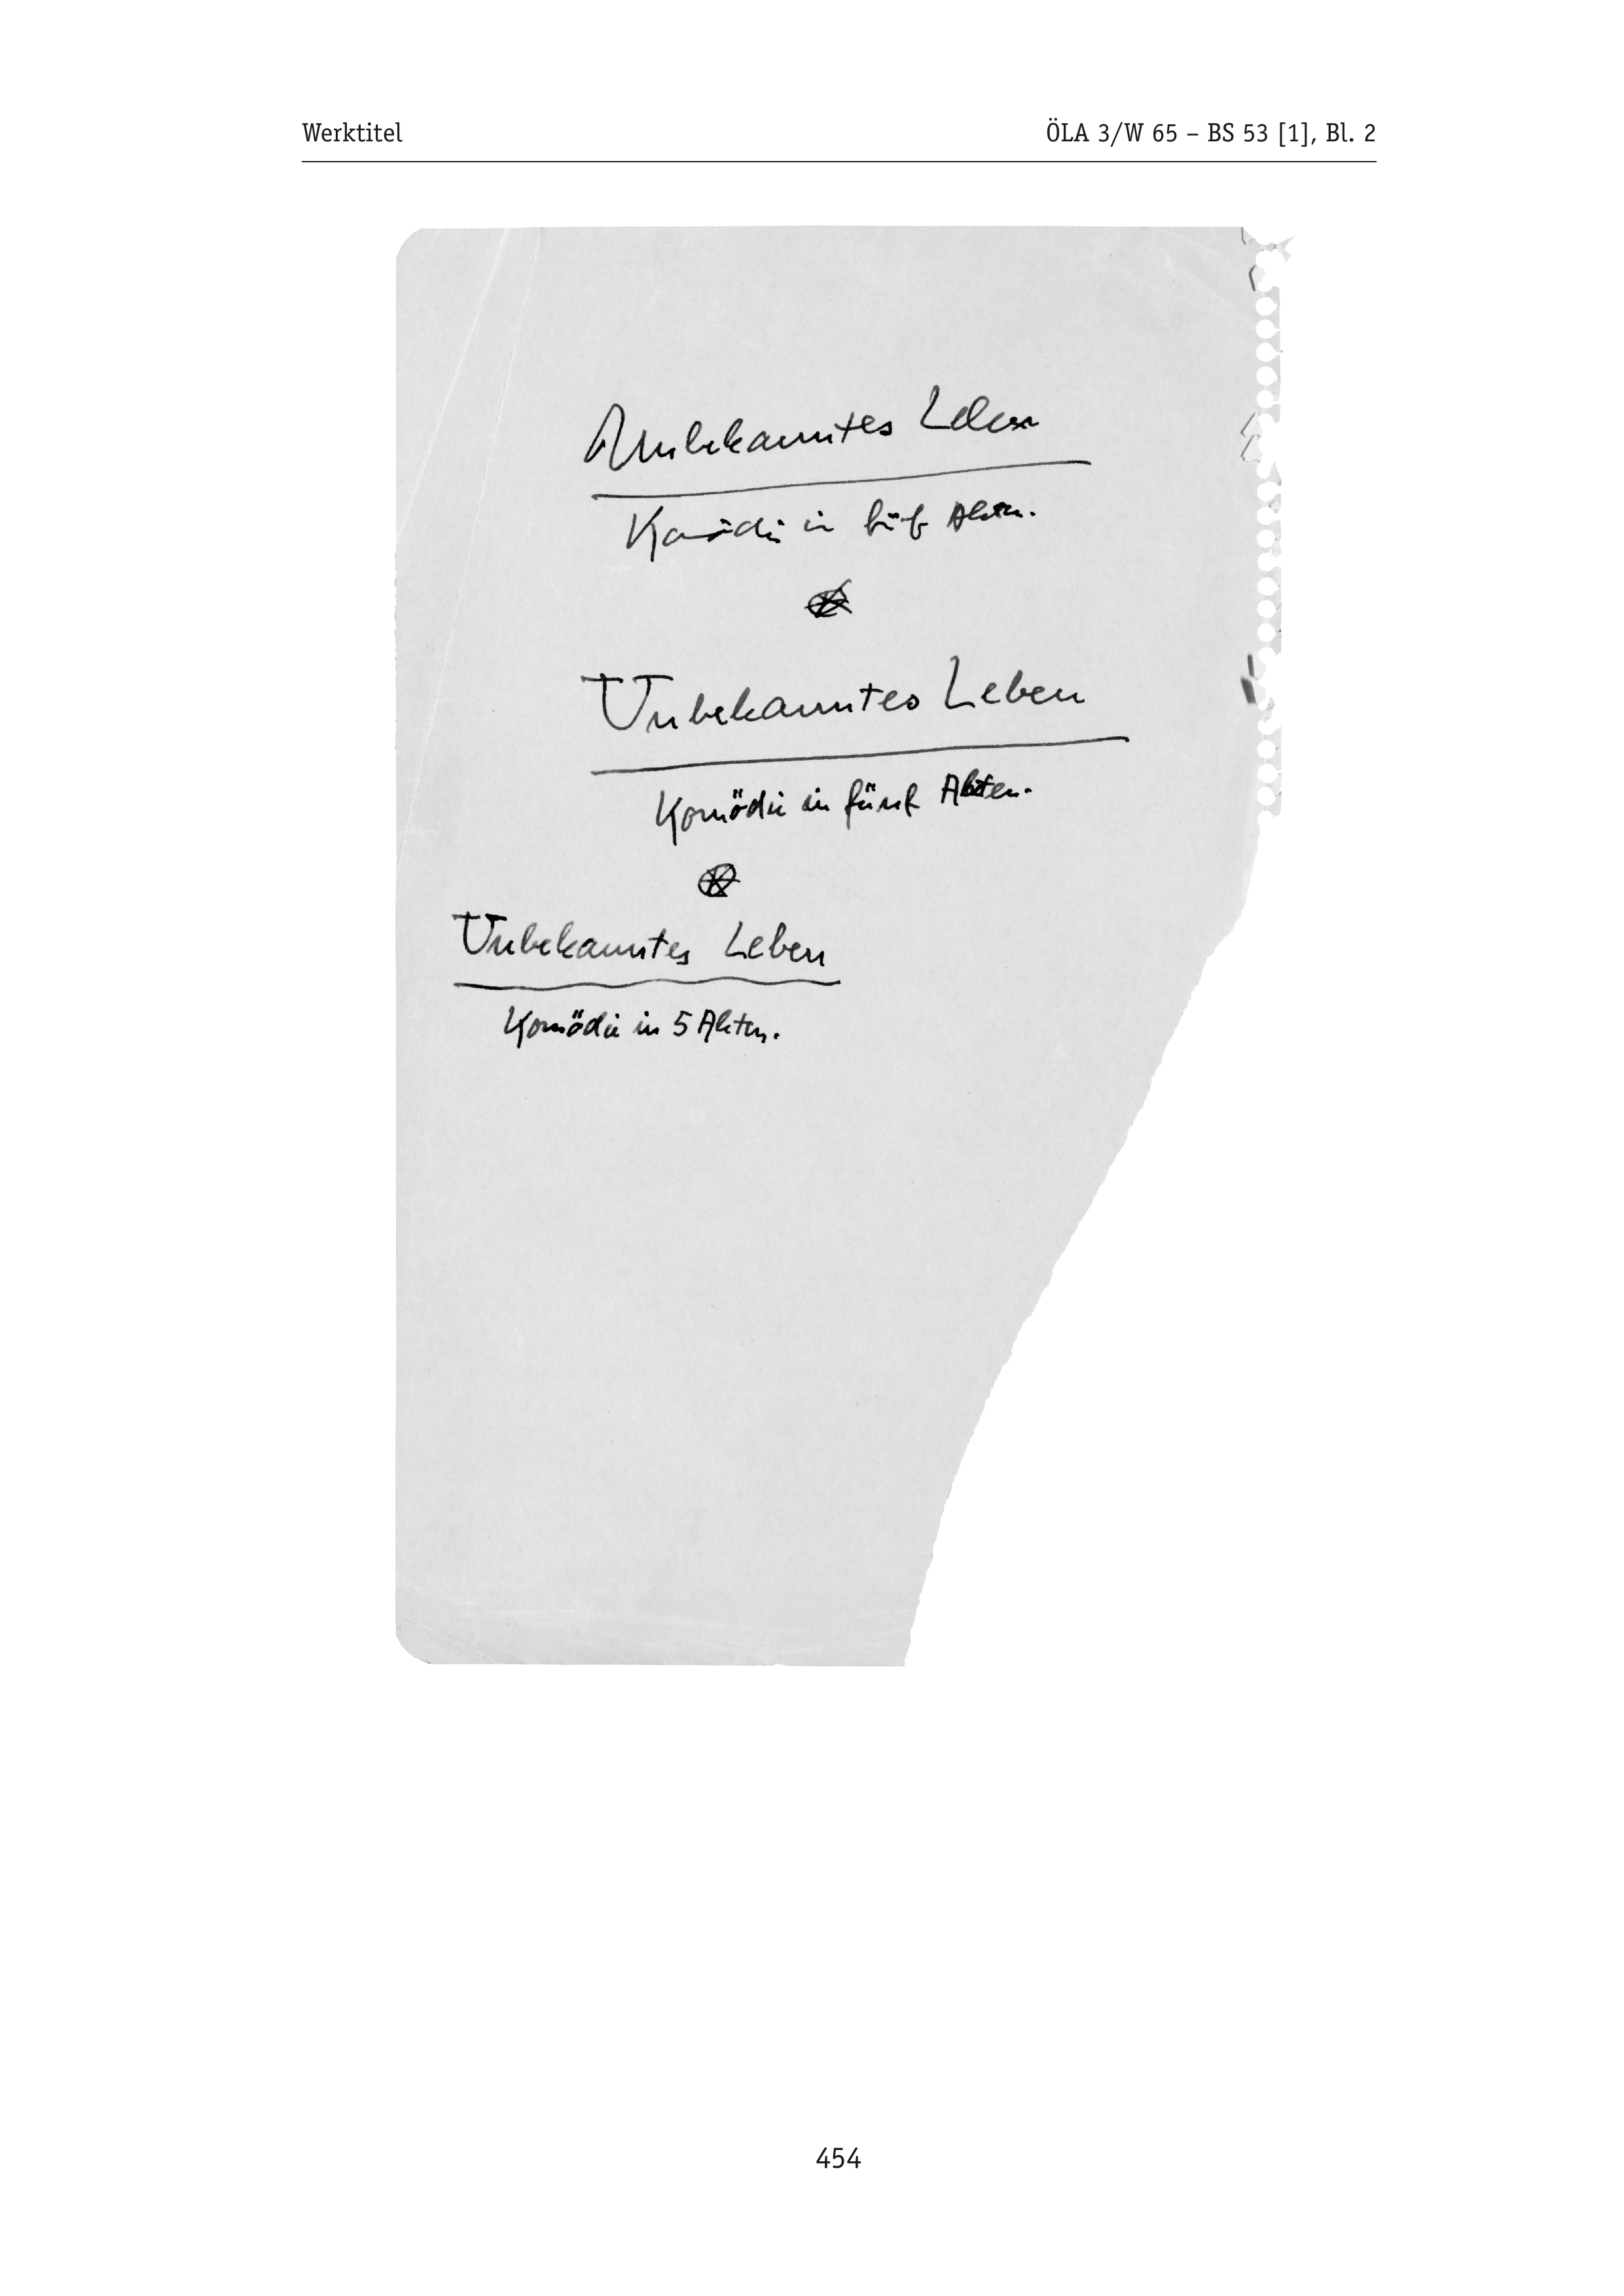 Werktitel ÖLA 3/W 65 – BS 53 [1], Bl. 2
Unbekanntes Leben
Komödie in fünf Akten.
Unbekanntes Leben
Komödie in fünf Akten.
Unbekanntes Leben
Komödie in 5 Akten.
454